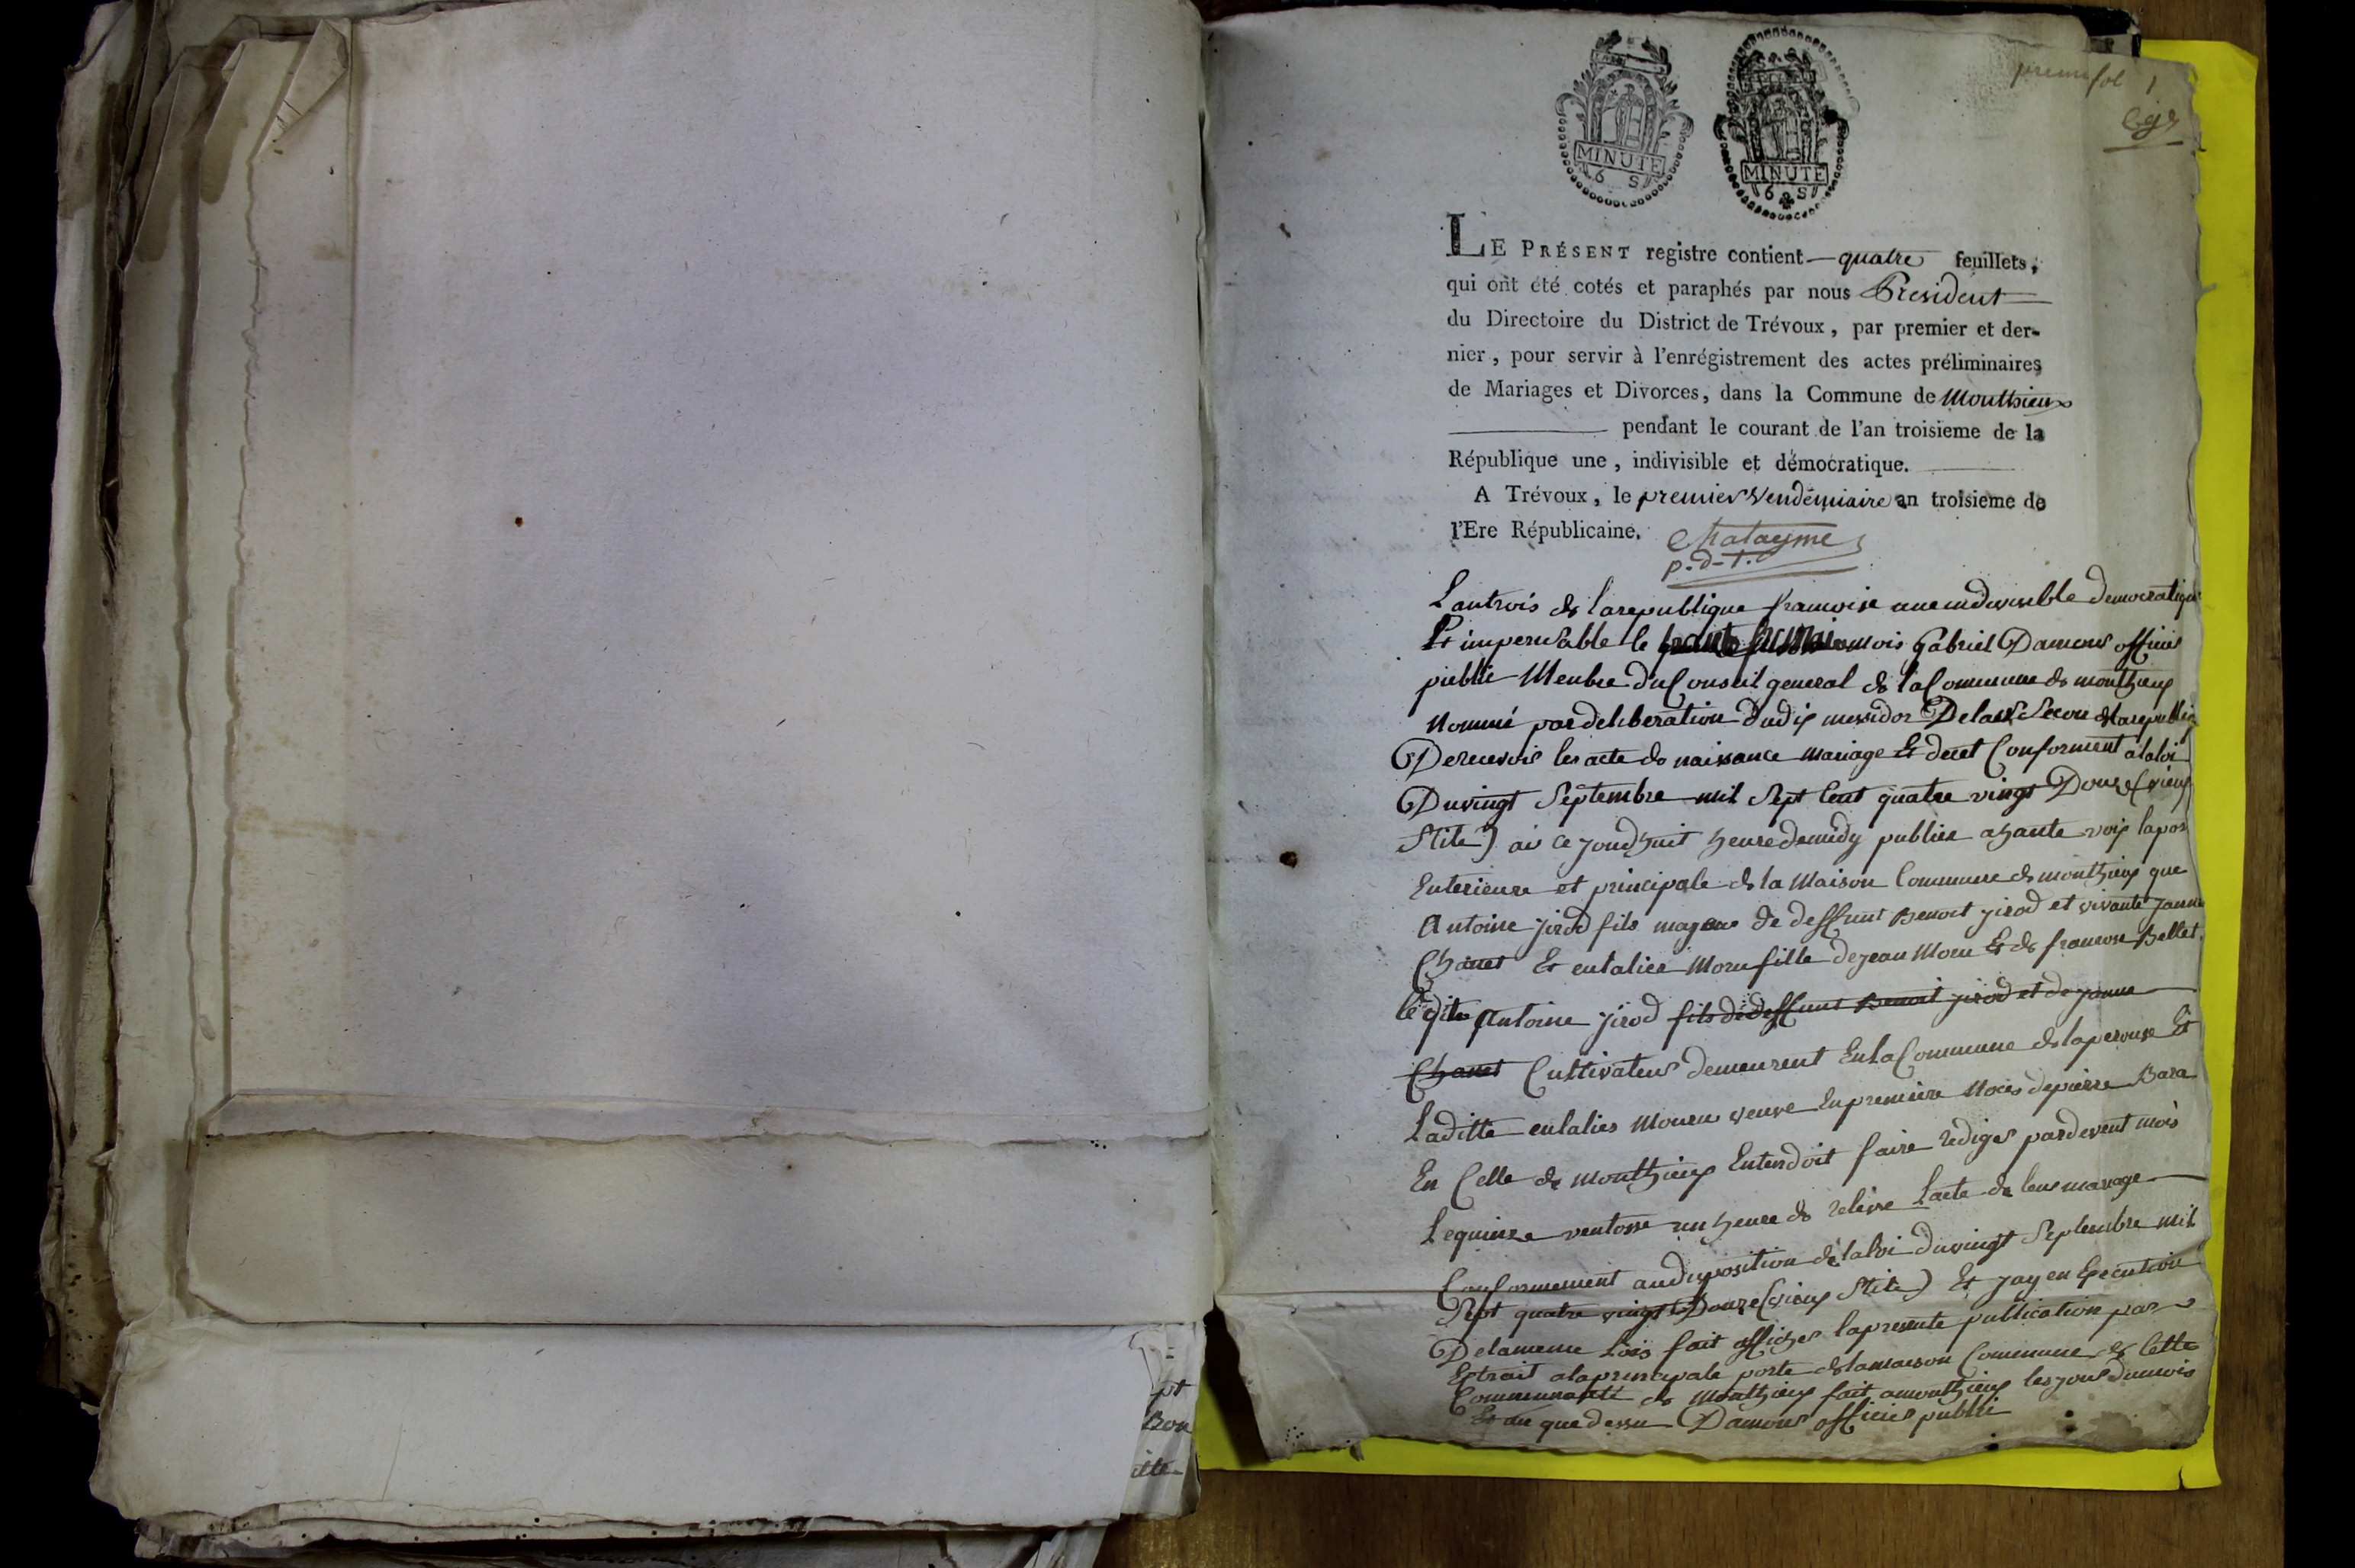 premier fol 1
MINUTE
6 S
MINUTE
6 S
LE PRÉSENT registre contient quatre feuillets,
qui ont été cotés et paraphés par nous President
du Directoire du District de Trévoux, par premier et der-
nier, pour servir à l'enrégistrement des actes préliminaires
de Mariages et Divorces, dans la Commune de Monthieux
pendant le courant de l'an troisieme de la
République une, indivisible et démocratique.
A Trévoux, le premier Vendémiaire an troisieme de
l'Ere Républicaine.
p.d.t.
Lantrois de larepublique francoise une indivisible democratique
Et imperisable le mois Gabriel Damour officier
public Menbre du Conseil general de la Commune de monthieux
Nommé par deliberation du dix messidor De lan Secon de larepublic
De recevoir les acte de naissance mariage Et decet Conforment alaloi
Du vingt Septembre mil Sept Cent quatre vingt Douze (vieux
Stile) ai ce jourdhuit heure de midy publier a haute voix la por
Enterieure et principale de la Maison Commune de monthieux que
Antoine jirod fils majeur de deffunt Benoit jirod et vivante janne
Chanet Et eulalies Moru fille de jean Moru Et de francoise Bellet.
ledite Antoine jirod fils de deffunt Benoit jirod et de janne
Chanet Cultivateur demeurent En la Commune de laperouse Et
Laditte eulalies Moru veuve En premiere Noces de pierre Bara
En Celle de monthieux Entendoit faire rediger pardevent mois
Le quinze ventosse un heure de relevee Lacte de leur mariage
Conformement au disposition de la loi du vingt Septembre mil
Sept quatre vingt Douze (vieux Stile) Et jay en Execution
De lameme Lois fait afficher la presente publication par
Extrait a la principale porte de la maison Commune de Cette
Communauté de Monthieux fait a monthieux les jour du mois
Et an que dessu Damour officier public
pt
Bon
itte